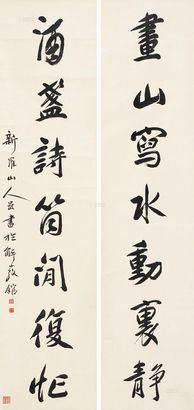 畫山寫水動裏靜
酒盞詩筒閒復忙
新羅山人喦書於解弢館